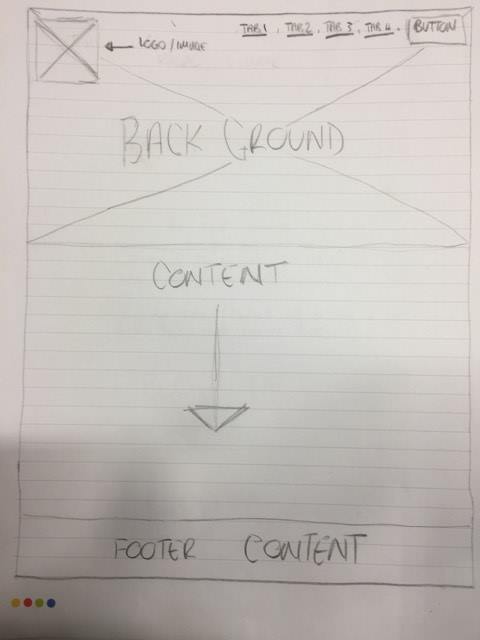 LOGO/IMAGE
TAB 1 TAB 2 TAB 3 TAB 4 BUTTON
BACK GROUND
CONTENT
FOOTER CONTENT